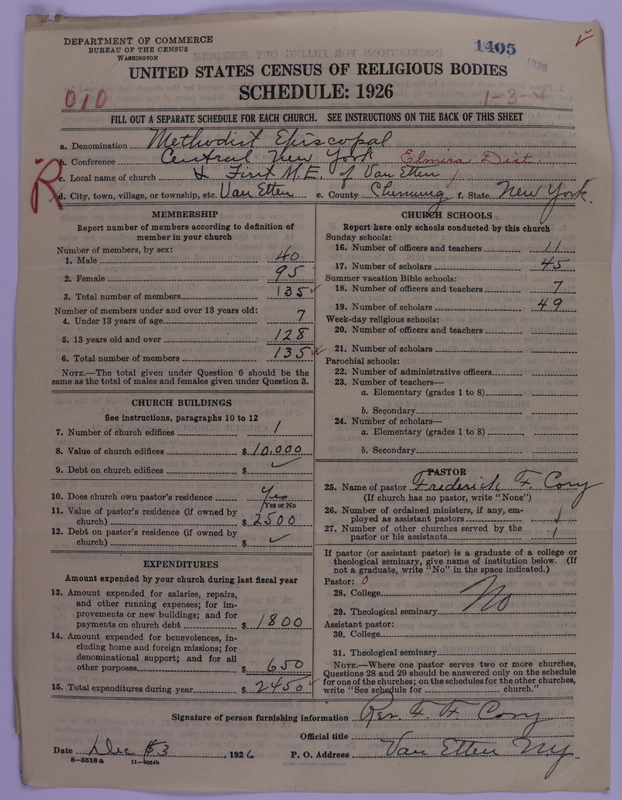 DEPARTMENT OF COMMERCE
BUREAU OF THE CENSUS
WASHINGTON
1405
1926
UNITED STATES CENSUS OF RELIGIOUS BODIES
SCHEDULE: 1926
010
1-3-4
FILL OUT A SEPARATE SCHEDULE FOR EACH CHURCH. SEE INSTRUCTIONS ON THE BACK OF THIS SHEET
a. Denomination Methodist Episcopal
b. Conference Central New York Elmira Dist.
c. Local name of church First M.E. of Van Etten
R
d. City, town, village, or township, etc. Van Etten e. County Chemung f. State New York.
MEMBERSHIP
Report number of members according to definition of member in your church
Number of members, by sex:
1. Male 40
2. Female 95
3. Total number of members 135
Number of members under and over 13 years old:
4. Under 13 years of age 7
5. 13 years old and over 128
6. Total number of members 135
NOTE.—The total given under Question 6 should be the
same as the total of males and females given under Question 3.
CHURCH BUILDINGS
See instructions, paragraphs 10 to 12
7. Number of church edifices 1
8. Value of church edifices $ 10,000
9. Debt on church edifices $ ✓
10. Does church own pastor's residence Yes
Yes or No
11. Value of pastor's residence (if owned by
church) $ 2500
12. Debt on pastor's residence (if owned by
church) $ ✓
EXPENDITURES
Amount expended by your church during last fiscal year
13. Amount expended for salaries, repairs,
and other running expenses; for im-
provements or new buildings; and for
payments on church debt $ 1800
14. Amount expended for benevolences, in-
cluding home and foreign missions; for
denominational support; and for all
other purposes $ 650
15. Total expenditures during year $ 2450
CHURCH SCHOOLS
Report here only schools conducted by this church
Sunday schools:
16. Number of officers and teachers 11
17. Number of scholars 45
Summer vacation Bible schools:
18. Number of officers and teachers 7
19. Number of scholars 49
Week-day religious schools:
20. Number of officers and teachers
21. Number of scholars
Parochial schools:
22. Number of administrative officers
23. Number of teachers—
a. Elementary (grades 1 to 8)
b. Secondary
24. Number of scholars—
a. Elementary (grades 1 to 8)
b. Secondary
PASTOR
25. Name of pastor Frederick F. Cory
(If church has no pastor, write "None")
26. Number of ordained ministers, if any, em-
ployed as assistant pastors 1
27. Number of other churches served by the
pastor or his assistants 1
If pastor (or assistant pastor) is a graduate of a college or
theological seminary, give name of institution below. (If
not a graduate, write "No" in the space indicated.)
Pastor: 0
28. College
No
29. Theological seminary
Assistant pastor:
30. College
31. Theological seminary
NOTE.—Where one pastor serves two or more churches,
Questions 28 and 29 should be answered only on the schedule
for one of the churches; on the schedules for the other churches,
write "See schedule for church."
Signature of person furnishing information Rev. F. F. Cory
Official title
Date Dec 3 1926 P. O. Address Van Etten NY.
8-5518 a